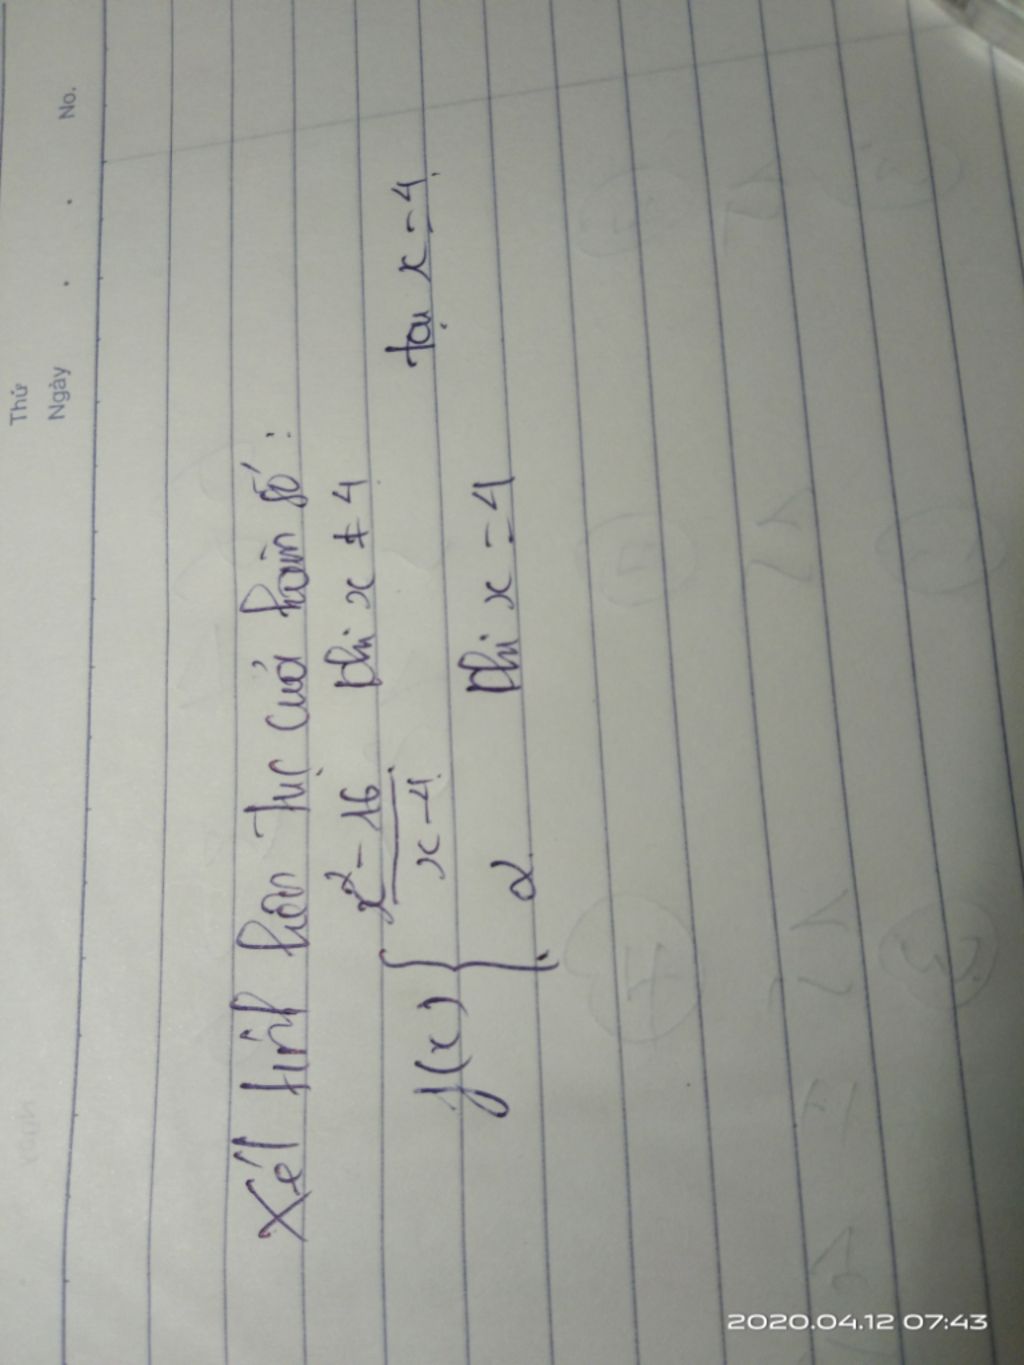 Thứ
Ngày . . No.
Xét tính liên tục của hàm số :
f(x) { x² - 16 / x - 4 khi x ≠ 4
α khi x = 4
tại x = 4
2020.04.12 07:43